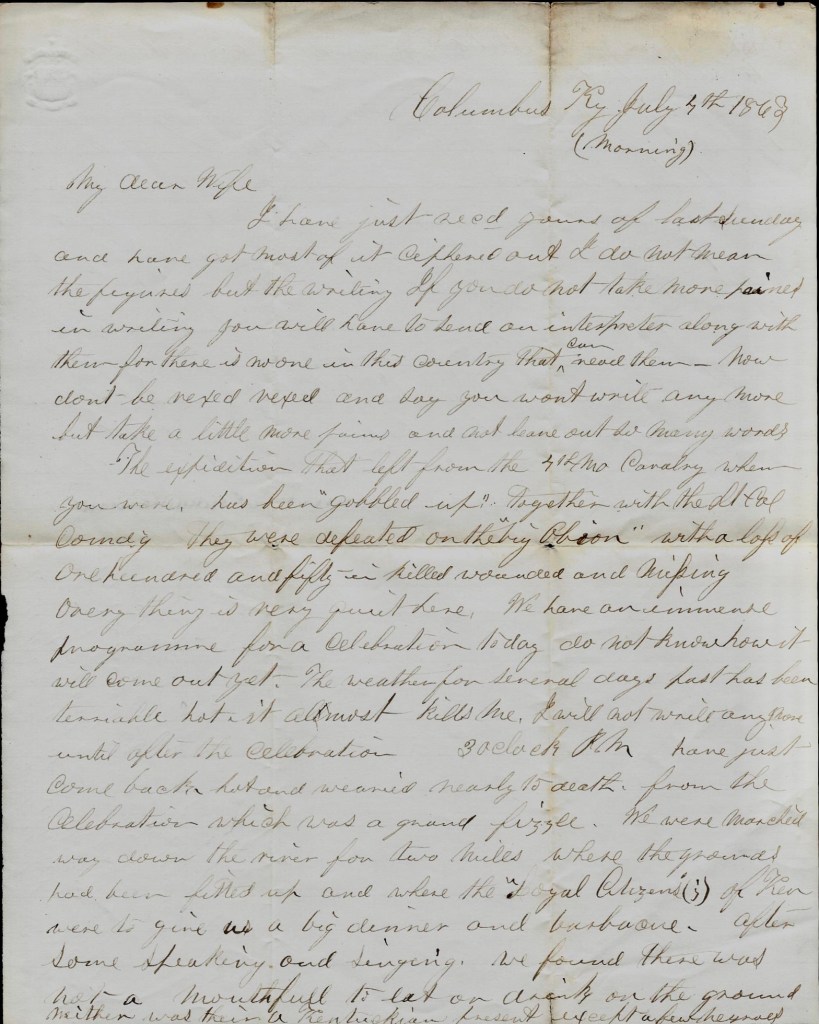 Columbus Ky July 4th 1863
(Morning)
My dear Wife
I have just recd yours of last sunday
and have got most of it ciphered out I do not mean
the figures but the writing If you do not take more pains
in writing you will have to send an interpreter along with
them for there is no one in this country that can read them – Now
dont be vexed vexed and say you wont write any more
but take a little more pains and not leave out so many words
The expidition that left from the 4th Mo Cavalry when
you were, has been "gobbled up" together with the Lt Col
Comdg they were defeated on the "big Obion" with a loss of
one hundred and fifty in killed wounded and missing
Every thing is very quiet here, We have an immense
programme for a celebration today do not know how it
will come out yet. The weather for several days past has been
terriable hot it almost kills me, I will not write any more
until after the celebration 3 oclock P.M have just
come back hot and wearied nearly to death. from the
Celebration which was a grand fizzle. We were marched
way down the river for two miles where the grounds
had been fitted up and where the "Loyal Citizens (?) of Ken
were to give us a big dinner and barbacue. after
some speaking and singing. we found there was
not a mouthfull to eat or drink on the ground
neither was their a Kentuckian present except a few negroes